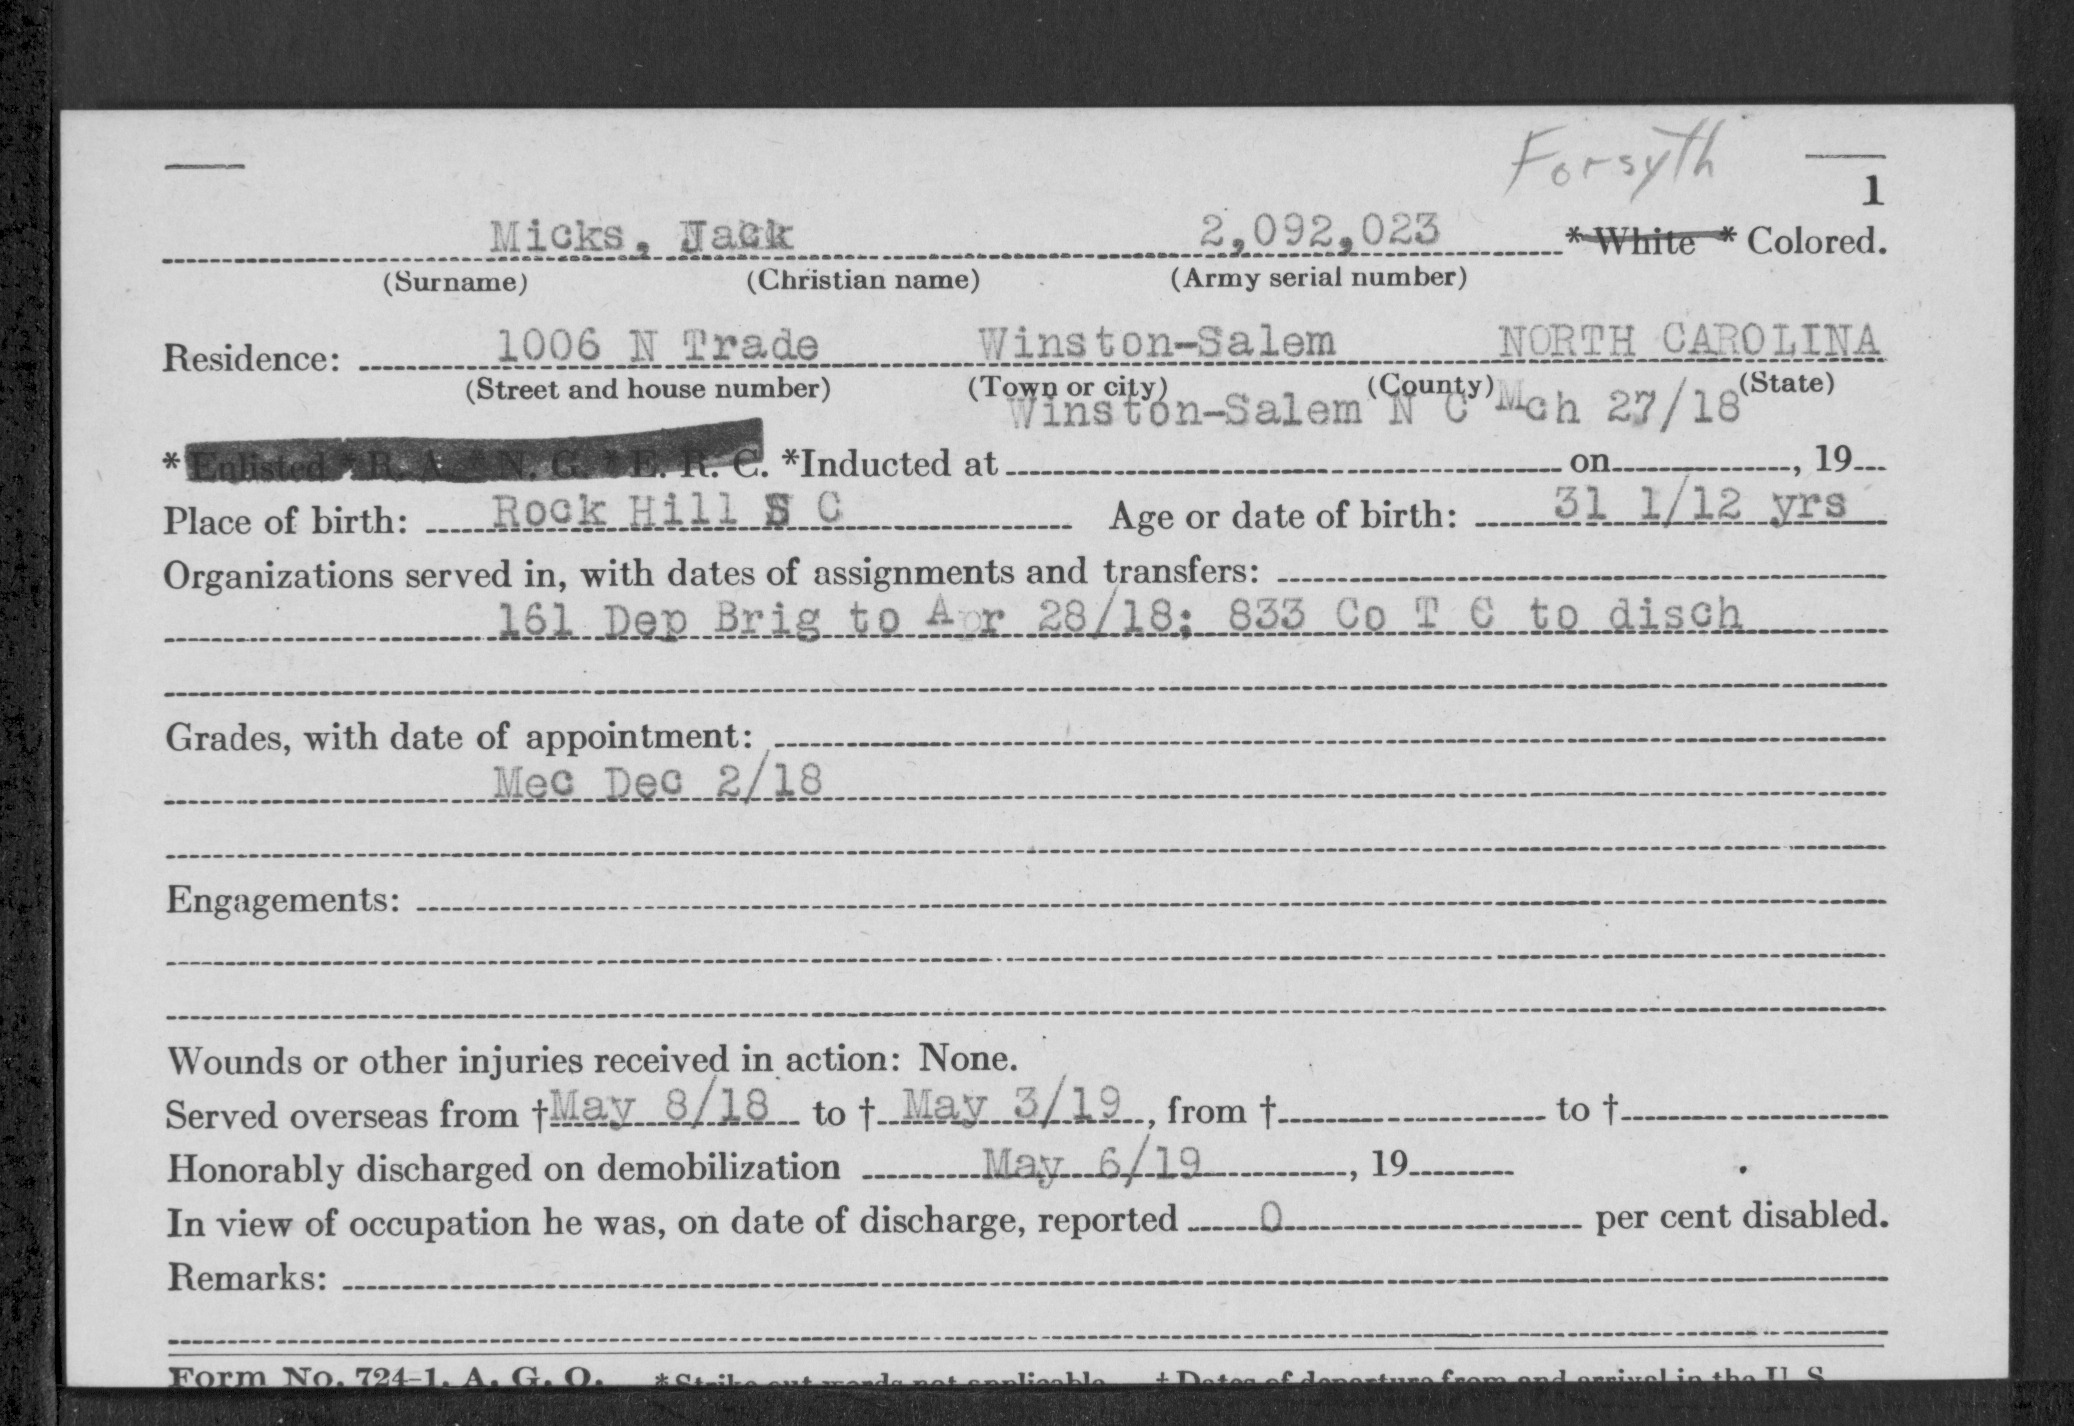 Forsyth
1
Micks, Jack 2,092,023 * White * Colored.
(Surname) (Christian name) (Army serial number)
Residence: 1006 N Trade Winston-Salem NORTH CAROLINA
(Street and house number) (Town or city) (County) (State)
Winston-Salem N C Mch 27/18
* Enlisted * R. A. * N. G. * E. R. C. *Inducted at on , 19
Place of birth: Rock Hill S C Age or date of birth: 31 1/12 yrs
Organizations served in, with dates of assignments and transfers:
161 Dep Brig to Apr 28/18; 833 Co T C to disch
Grades, with date of appointment:
Mec Dec 2/18
Engagements:
Wounds or other injuries received in action: None.
Served overseas from † May 8/18 to † May 3/19, from † to †
Honorably discharged on demobilization May 6/19, 19
In view of occupation he was, on date of discharge, reported 0 per cent disabled.
Remarks:
Form No. 724-1, A. G. O. * Strike out words not applicable. † Dates of departure from and arrival in the U. S.